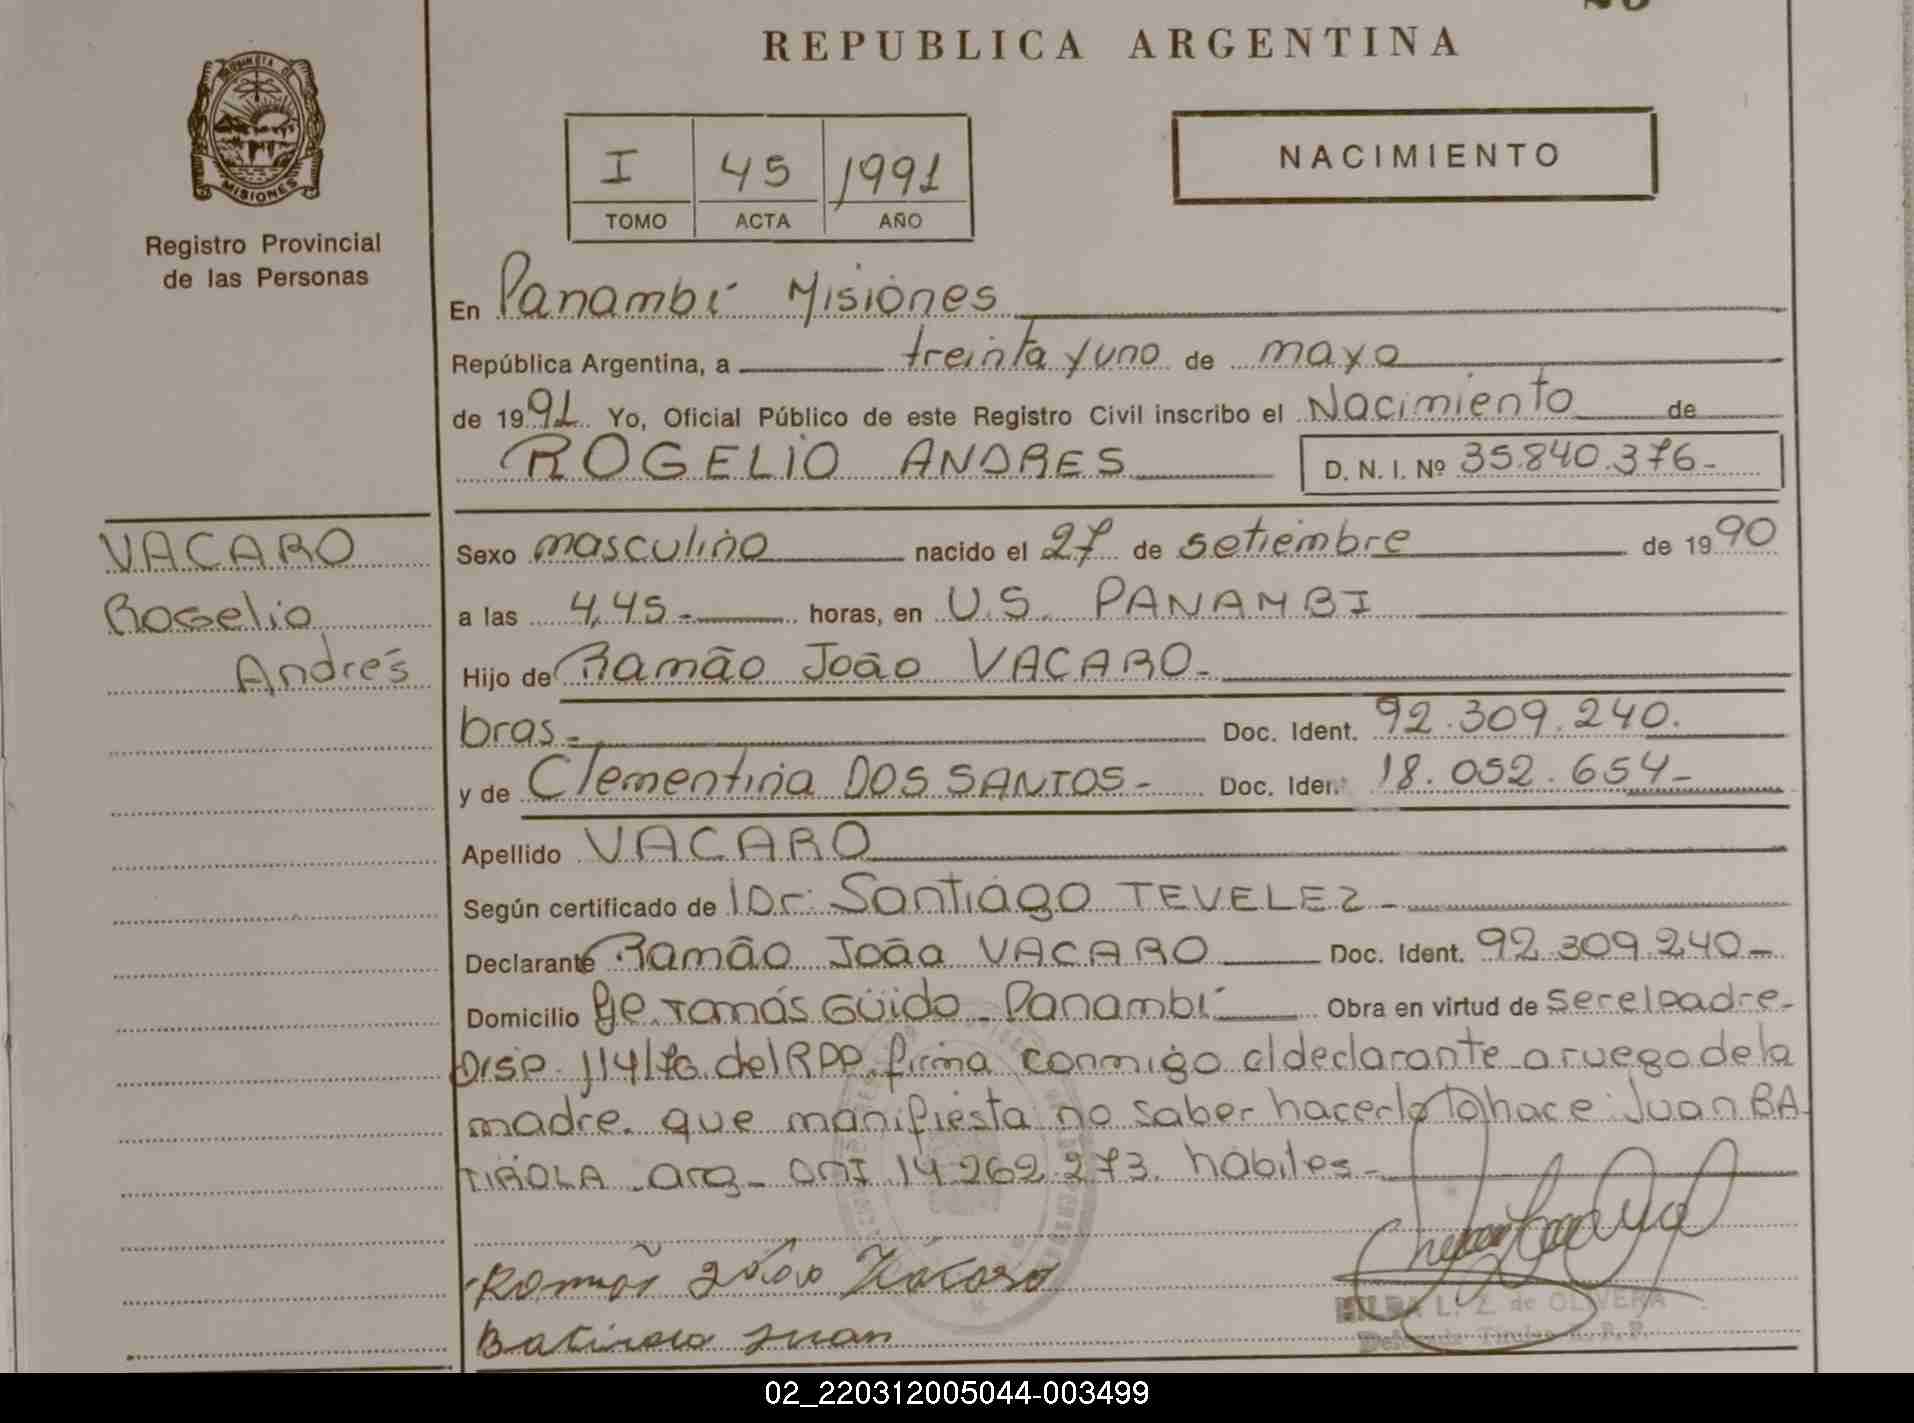 REPUBLICA ARGENTINA
PROVINCIA DE
MISIONES
Registro Provincial
de las Personas
I 45 1991
TOMO ACTA AÑO
NACIMIENTO
En Panambí Misiones
República Argentina, a treinta y uno de mayo
de 1991 Yo, Oficial Público de este Registro Civil inscribo el Nacimiento de
ROGELIO ANDRES D. N. I. Nº 35.840.376-
VACARO
Rogelio
Andrés
Sexo masculino nacido el 27 de setiembre de 1990
a las 4,45- horas, en U.S. PANAMBI
Hijo de Ramão João VACARO-
bras- Doc. Ident. 92.309.240.
y de Clementina DOS SANTOS- Doc. Ident 18.052.654-
Apellido VACARO
Según certificado de Dr. Santiago TEVELEZ-
Declarante Ramão João VACARO Doc. Ident. 92.309.240-
Domicilio Pje. Tomás Güido - Panambí Obra en virtud de ser el padre-
Disp. 114/76 del RPP. firma conmigo el declarante a ruego de la
madre. que manifiesta no saber hacerlo lo hace Juan BA
TIROLA - arg - DNI 14.262.273. hábiles.-
Ramão João Vacaro
Batirola Juan
HILDA L. Z. de OLIVERA
02_220312005044-003499